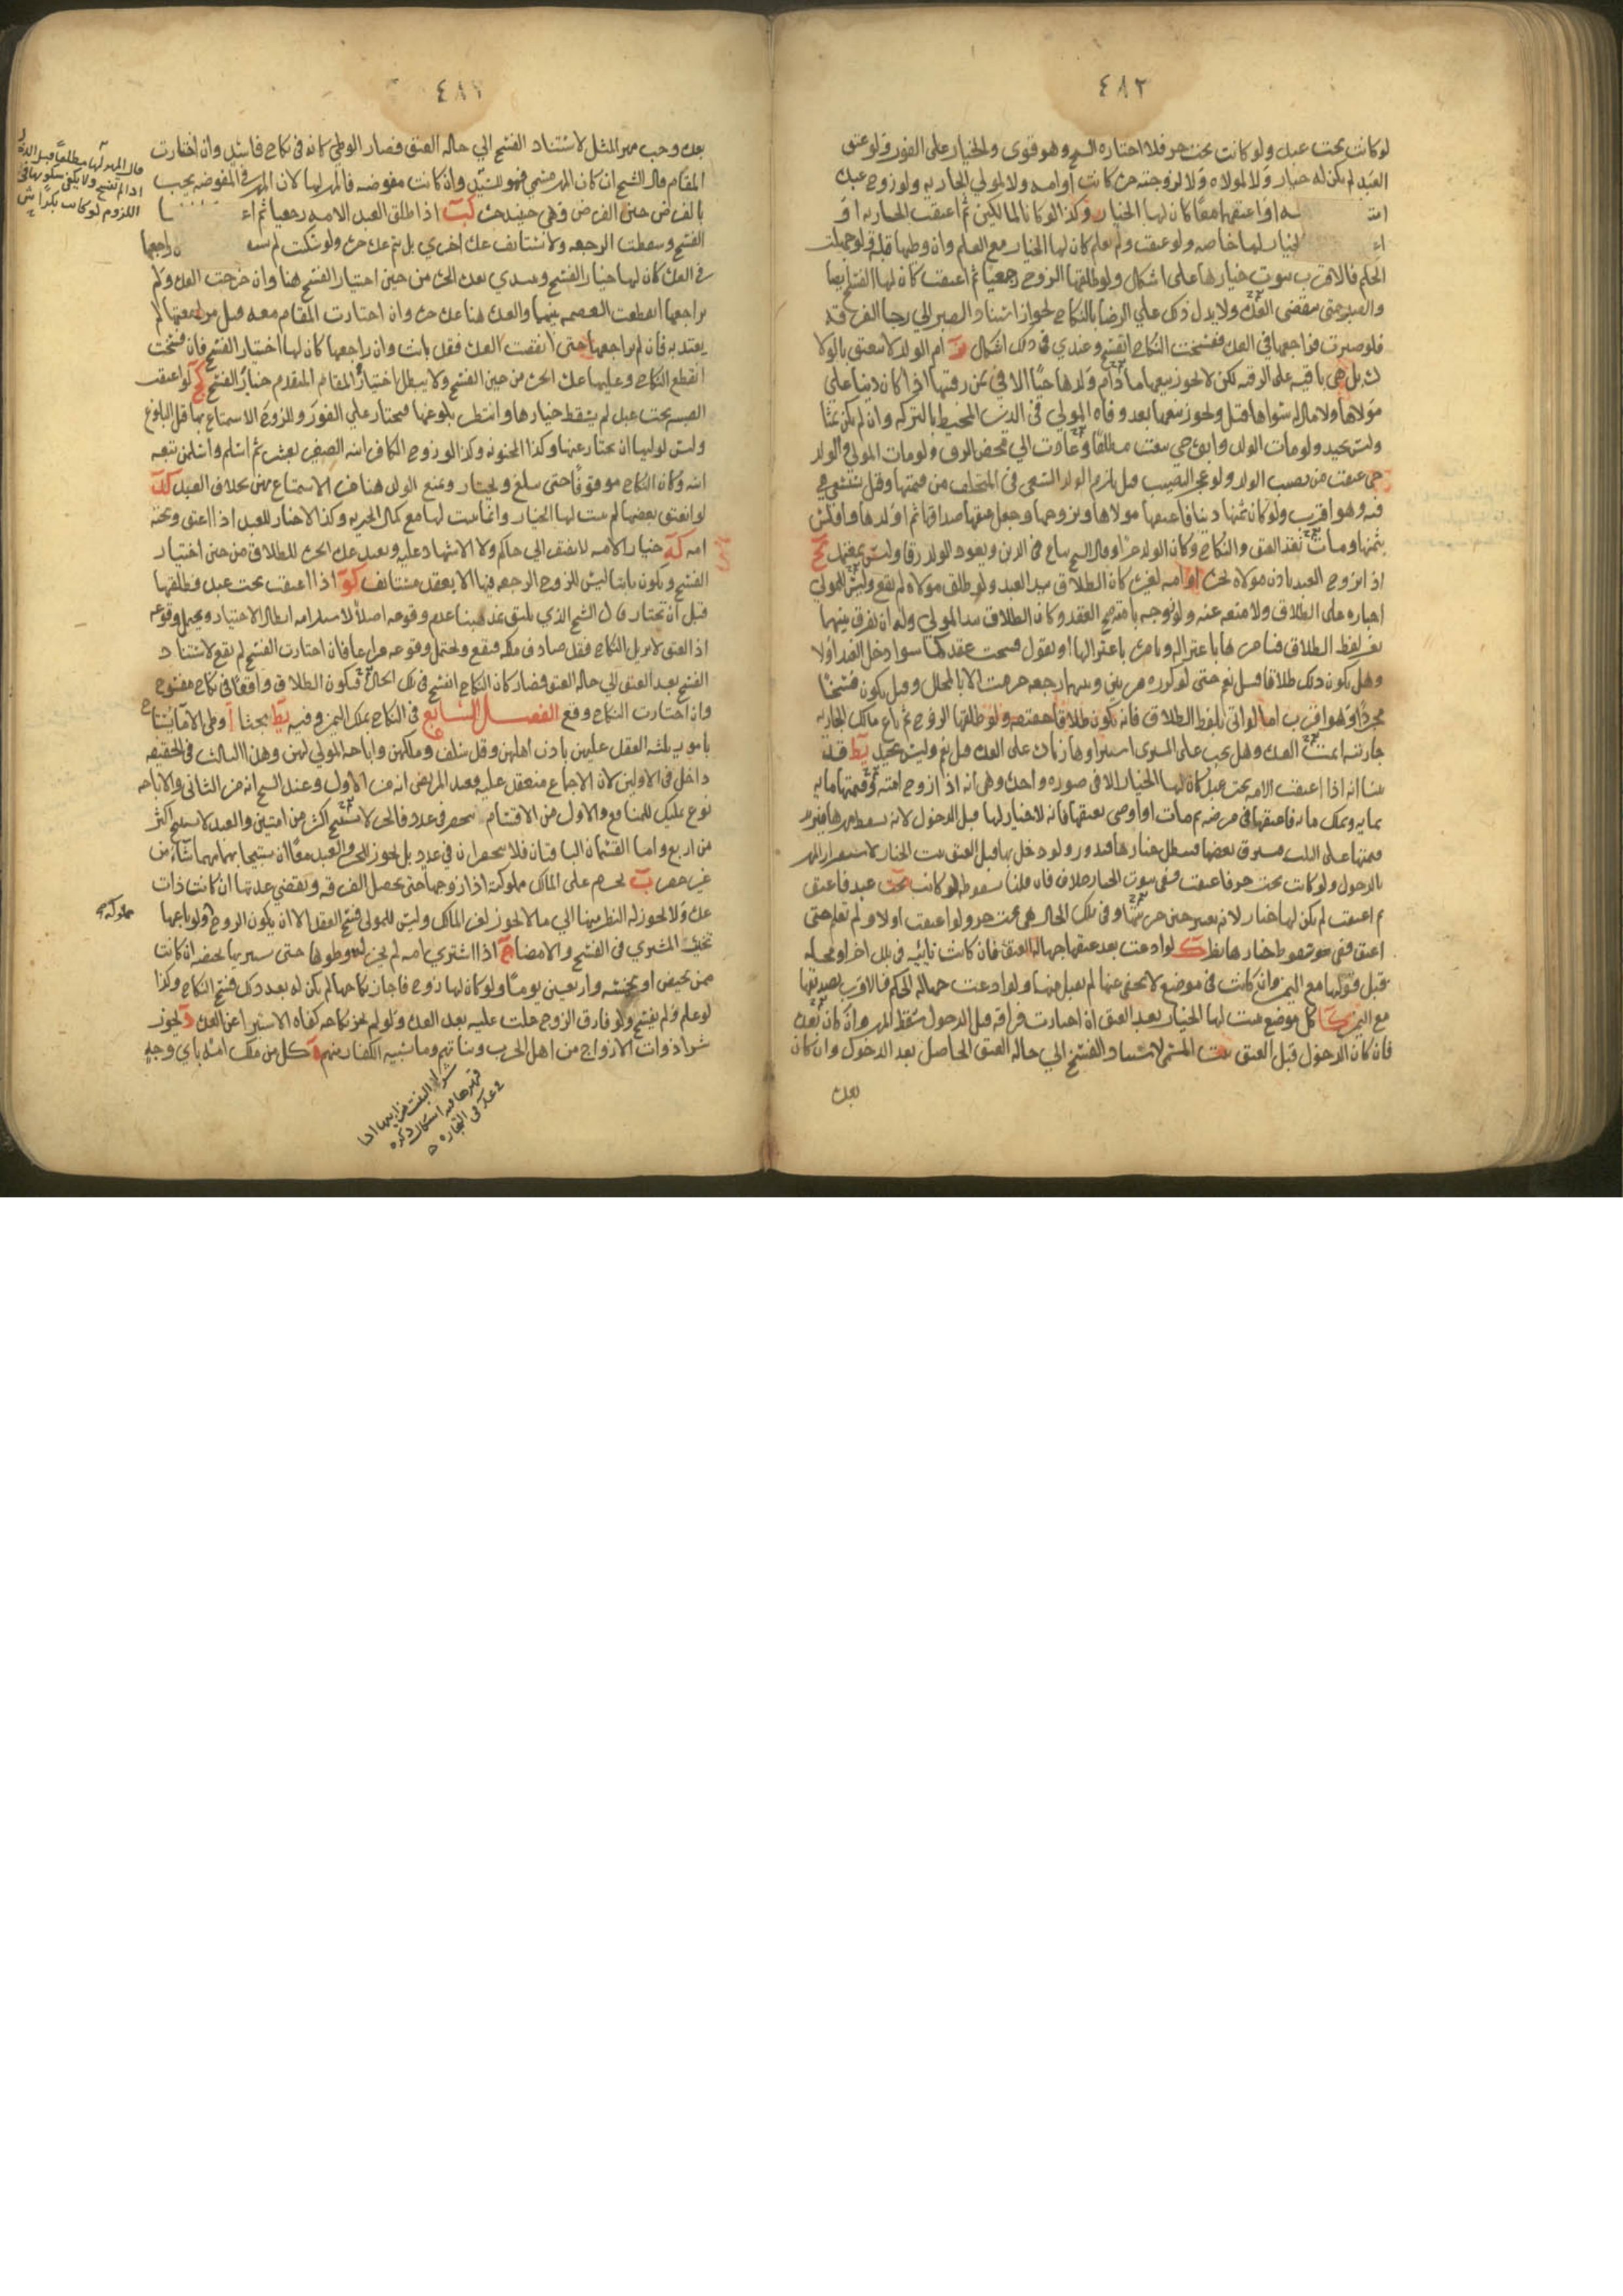 ٤٨٢
لو كانت تحت عبد ولو كانت تحت حر فلا اختاره الشيخ وهو قوى والخيار على الفور ولو عتق
العبد لم يكن له خيار ولا لمولاه ولا لزوجته حرة كانت أو أمة ولا لمولى الجارية ولو زوج عبده
أمته أو أعتقهما معا كان لها الخيار وكذا لو كانا لمالكين ثم أعتقت الجارية أو
الخيار لها خاصة ولو عتقت ولم تعلم كان لها الخيار مع العلم وإن وطيها قبله ولو جهلت
الحكم فالأقرب ثبوت خيارها على إشكال ولو طلقها الزوج رجعيا ثم أعتقت كان لها الفسخ أيضا
والصبر حتى تنقضي العدة ولا يدل ذلك على الرضا بالنكاح لجواز استناد الصبر إلى رجا الفرقة
فلو صبرت فراجعها في العدة ففسخت النكاح انفسخ وعندي في ذلك إشكال أم الولد لا تنعتق بالولا
دة بل هي باقية على الرقية لكن لا يجوز بيعها ما دام ولدها حيا إلا في ثمن رقبتها إذا كان دينا على
مولاها ولا مال له سواها قيل ويجوز بيعها بعد وفاة المولى في الدين المحيط بالتركة وإن لم يكن ثمنا
وليس بجيد ولو مات الولد وأبوه حي بيعت مطلقا وعادت إلى محض الرق ولو مات المولى والولد
حي عتقت من نصيب الولد ولو عجز النصيب قيل يلزم الولد السعي في المتخلف من قيمتها وقيل تستسعي هي
فيه وهو أقرب ولو كان ثمنها دينا فأعتقها مولاها وتزوجها وجعل عتقها صداقها ثم أولدها وأفلس
بثمنها ومات نفذ العتق والنكاح وكان الولد حرا وقال الشيخ تباع في الدين ويعود الولد رقا وليس بمعتمد
إذا تزوج العبد بإذن مولاه بحرة أو أمة لغيره كان الطلاق بيد العبد ولو طلق مولاه لم يقع وليس للمولى
إجباره على الطلاق ولا منعه عنه ولو زوجه بأمته صح العقد وكان الطلاق بيد المولى وله أن يفرق بينهما
بغير لفظ الطلاق فيأمرها باعتزاله ويأمره باعتزالها أو يقول فسخت عقدكما سوا دخل العبد أو لا
وهل يكون ذلك طلاقا قيل نعم حتى لو كرره مرتين وبينهما رجعة حرمت إلا بالمحلل وقيل يكون فسخا
مجردا وهو أقرب أما لو أتى بلفظ الطلاق فإنه يكون طلاقا حقيقة ولو طلقها الزوج ثم باع مالك الجارية
جاريته أتمت العدة وهل يجب على المشتري استبراؤها زيادة على العدة قيل نعم وليس بجيد يط قد
بينا أنه إذا أعتقت الأمة تحت عبد كان لها الخيار إلا في صورة واحدة وهي أنه إذا زوج أمته وقيمتها مائة
بمائة ويملك مائة فأعتقها في مرضه ثم مات أو أوصى بعتقها فإنه لا خيار لها قبل الدخول لأنه يسقط مهرها فيزيد
قيمتها على الثلث فيسترق بعضها فيبطل خيارها فيدور ولو دخل بها قبل العتق ثبت الخيار لاستقرار المهر
بالدخول ولو كانت تحت حر فأعتقت ففي ثبوت الخيار خلاف فإن قلنا بسقوطه لو كانت تحت عبد فأعتق
ثم أعتقت لم يكن لها خيار لأنه يصير حين حريتها وفي تلك الحال هي تحت حر ولو أعتقت أولا ولم تعلم حتى
أعتق ففي سقوط خيارها نظر ك لو ادعت بعد عتقها جهالة العتق فإن كانت نائية في بلد آخر أو محله
قبل قولها مع اليمين وإن كانت في موضع لا يخفى عنها لم يقبل منها ولو ادعت جهالة الحكم فالأقرب تصديقها
مع اليمين كا كل موضع يثبت لها الخيار بعد العتق إن اختارت فراقه قبل الدخول سقط المهر وإن كان بعده
فإن كان الدخول قبل العتق ثبت المسمى لاستناد الفسخ إلى حالة العتق الحاصل بعد الدخول وإن كان
بعده
بعده وجب مهر المثل لاستناد الفسخ إلى حالة العتق فصار الوطي كأنه في نكاح فاسد وإن اختارت
المقام قال الشيخ إن كان المهر مسمى فهو للسيد وإن كانت مفوضة فالمهر لها لأن المهر في المفوضة يجب
بالفرض حين الفرض وهي حينئذ حرة كب إذا طلق العبد الأمة رجعيا ثم أع
الفسخ وسقطت الرجعة ولا تستأنف عدة أخرى بل تتم عدة حرة ولو سكتت لم راجعها
في العدة كان لها خيار الفسخ وتبتدي بعدة الحرة من حين اختيار الفسخ هنا وإن خرجت العدة ولم
يراجعها انقطعت العصمة بينهما والعدة هنا عدة حرة وإن اختارت المقام معه قبل مراجعتها لم
يعتد به فإن لم يراجعها حتى انقضت العدة فقد بانت وإن راجعها كان لها اختيار الفسخ فإن فسخت
انقطع النكاح وعليها عدة الحرة من حين الفسخ ولا يبطل اختيار المقام المتقدم خيار الفسخ كج لو أعتقت
الصبية تحت عبد لم يسقط خيارها وانتظر بلوغها فتختار على الفور وللزوج الاستمتاع بها قبل البلوغ
وليس لوليها أن يختار عنها وكذا المجنونة وكذا لو زوج الكافر ابنه الصغير بعشر ثم أسلم وأسلمن تبعه
ابنه وكان النكاح موقوفا حتى يبلغ ويختار ويمنع الولد هنا من الاستمتاع بهن بخلاف العبد كد
لو انعتق بعضها لم يثبت لها الخيار وإنما يثبت لها مع كمال الحرية وكذا لا خيار للعبد إذا أعتق وتحته
أمة كه خيار الأمة لا يفتقر إلى حاكم ولا الإشهاد عليه وتعتد عدة الحرة للطلاق من حين اختيار
الفسخ ويكون بائنا ليس للزوج الرجعة فيها إلا بعقد مستأنف كو إذا أعتقت تحت عبد فطلقها
قبل أن تختار قال الشيخ الذي يليق بمذهبنا عدم وقوعه أصلا لاستلزامه إبطال الاختيار ويحتمل وقوعه
إذ العتق لا يزيل النكاح فقد صادف ملكه فيقع ويحتمل وقوعه مراعا فإن اختارت الفسخ لم يقع لاستناد
الفسخ بعد العتق إلى حالة العتق فصار كأن النكاح انفسخ في تلك الحال فيكون الطلاق واقعا في نكاح مفسوخ
وإن اختارت النكاح وقع الفصل السابع في النكاح بملك اليمين وفيه يط بحثا آ وطى الإما يستباح
بأمور ثلثة العقد عليهن بإذن أهلهن وقد سلف وملكهن وإباحة المولى لهن وهذا الثالث في الحقيقة
داخل في الأولين لأن الإجماع منعقد عليه فعند المرتضى أنه من الأول وعند الشيخ أنه من الثاني والإباحة
نوع تمليك للمنافع والأول من الأقسام ينحصر في عدد فالحر لا يستبيح أكثر من أمتين والعبد لا يستبيح أكثر
من أربع وأما القسمان الباقيان فلا ينحصران في عدد بل يجوز للحر والعبد معا أن يستبيحا بهما مهما شاءا من
غير حصر ب يحرم على المالك مملوكته إذا زوجها حتى تحصل الفرقة وتنقضي عدتها إن كانت ذات
عدة ولا يجوز له النظر منها إلى ما لا يجوز لغير المالك وليس للمولى فسخ العقد إلا أن يكون الزوج ولو باعها
مملوكه
تخير المشتري في الفسخ والإمضا ج إذا اشترى أمة لم يجز له وطوها حتى يستبريها بحيضة إن كانت
ممن تحيض أو بخمسة وأربعين يوما ولو كان لها زوج فأجاز نكاحها لم يكن له بعد ذلك فسخ النكاح وكذا
لو علم ولم يفسخ ولو فارق الزوج حلت عليه بعد العدة ولو لم يجز نكاحه كفاه الاستبراء عن العدة د يجوز
شرا ذوات الأزواج من أهل الحرب وبناتهم وما سبيه الكفار منهم ه كل من ملك أمة بأي وجه